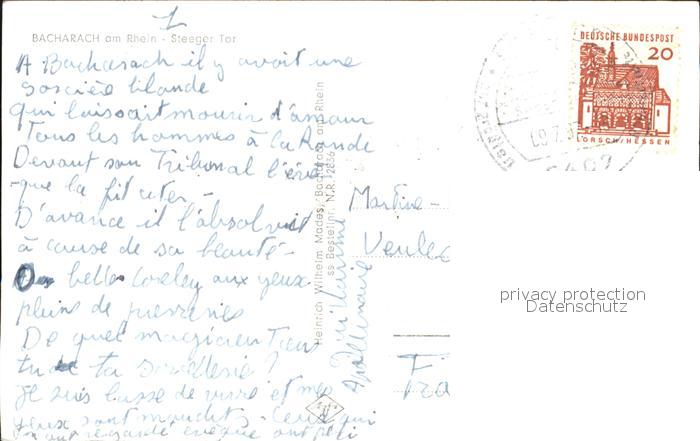 1
BACHARACH am Rhein - Steeger Tor
A Bacharach il y avait une
sorcière blonde
qui laissait mourir d'amour
Tous les hommes à la Ronde
Devant son Tribunal l'évê
-que la fit citer -
D'avance il l'absolvit
à cause de sa beauté -
O belle Loreley aux yeux
pleins de pierreries
De quel magicien Tiens
tu ta sorcellerie ?
Je suis lasse de vivre et mes
yeux sont maudits - Ceux qui
m'ont regardé évêque ont péri
Guillaume
Apollinaire
Heinrich Wilhelm Mades, Bacharach am Rhein
ss Bestellnr. N.R. 2836
DEUTSCHE BUNDESPOST
20
LORSCH/HESSEN
Martine -
Veules
privacy protection
Datenschutz